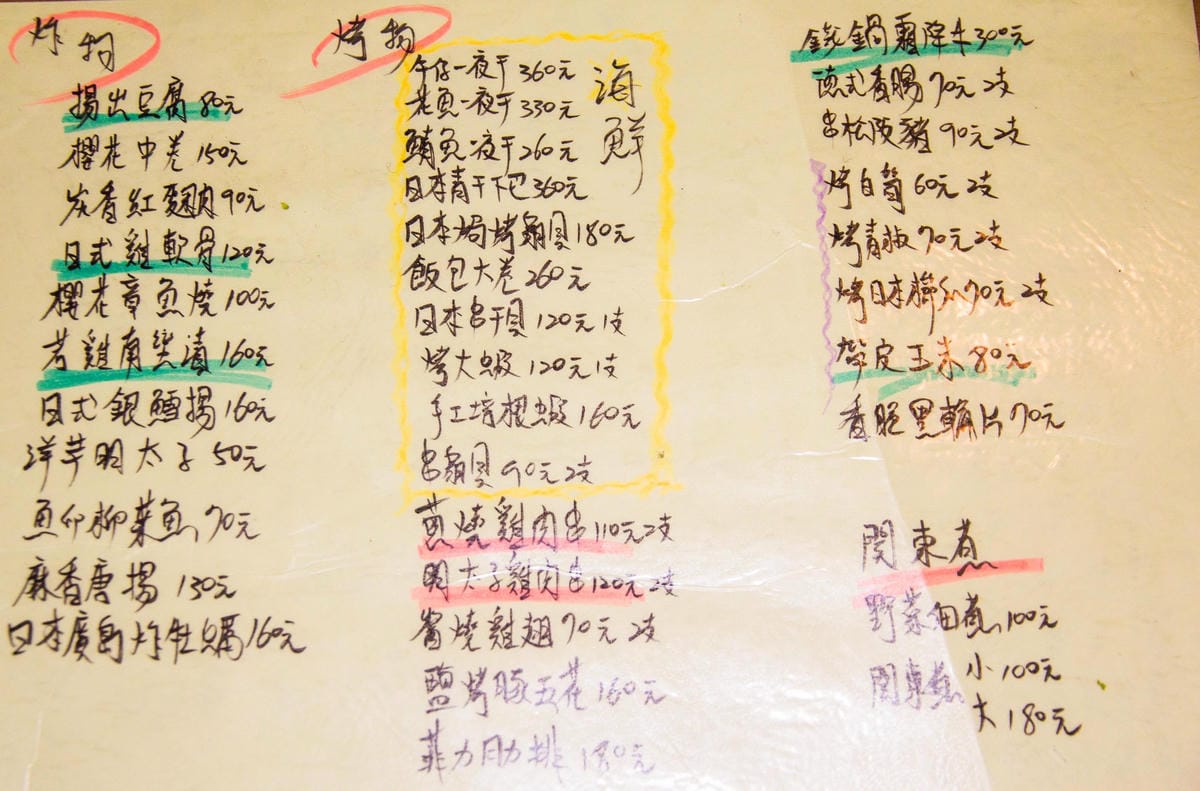 炸物
揚出豆腐 80元
櫻花中卷 150元
炭香紅麴肉 90元
日式雞軟骨 120元
櫻花章魚燒 100元
若雞南蠻漬 160元
日式銀鱈揚 160元
洋芋明太子 50元
魚卵柳葉魚 70元
麻香唐揚 130元
日本廣島炸牡蠣 160元
烤物
海鮮
午仔一夜干 360元
花魚一夜干 330元
鯖魚一夜干 260元
日本青干下巴 360元
日本焗烤扇貝 180元
飯包大卷 260元
日本串干貝 120元 1支
烤大蝦 120元 1支
手工培根蝦 160元
串扇貝 90元 2支
蔥燒雞肉串 110元 2支
明太子雞肉串 120元 2支
醬燒雞翅 70元 2支
鹽烤豚五花 160元
菲力肋排 180元
鐵鍋霜降牛 300元
德式香腸 70元 2支
串松阪豬 90元 2支
烤白筍 60元 2支
烤青椒 70元 2支
烤日本 70元 2支
帶皮玉米 80元
香脆黑輪片 70元
関東煮
野菜佃煮 100元
関東煮 小 100元
大 180元